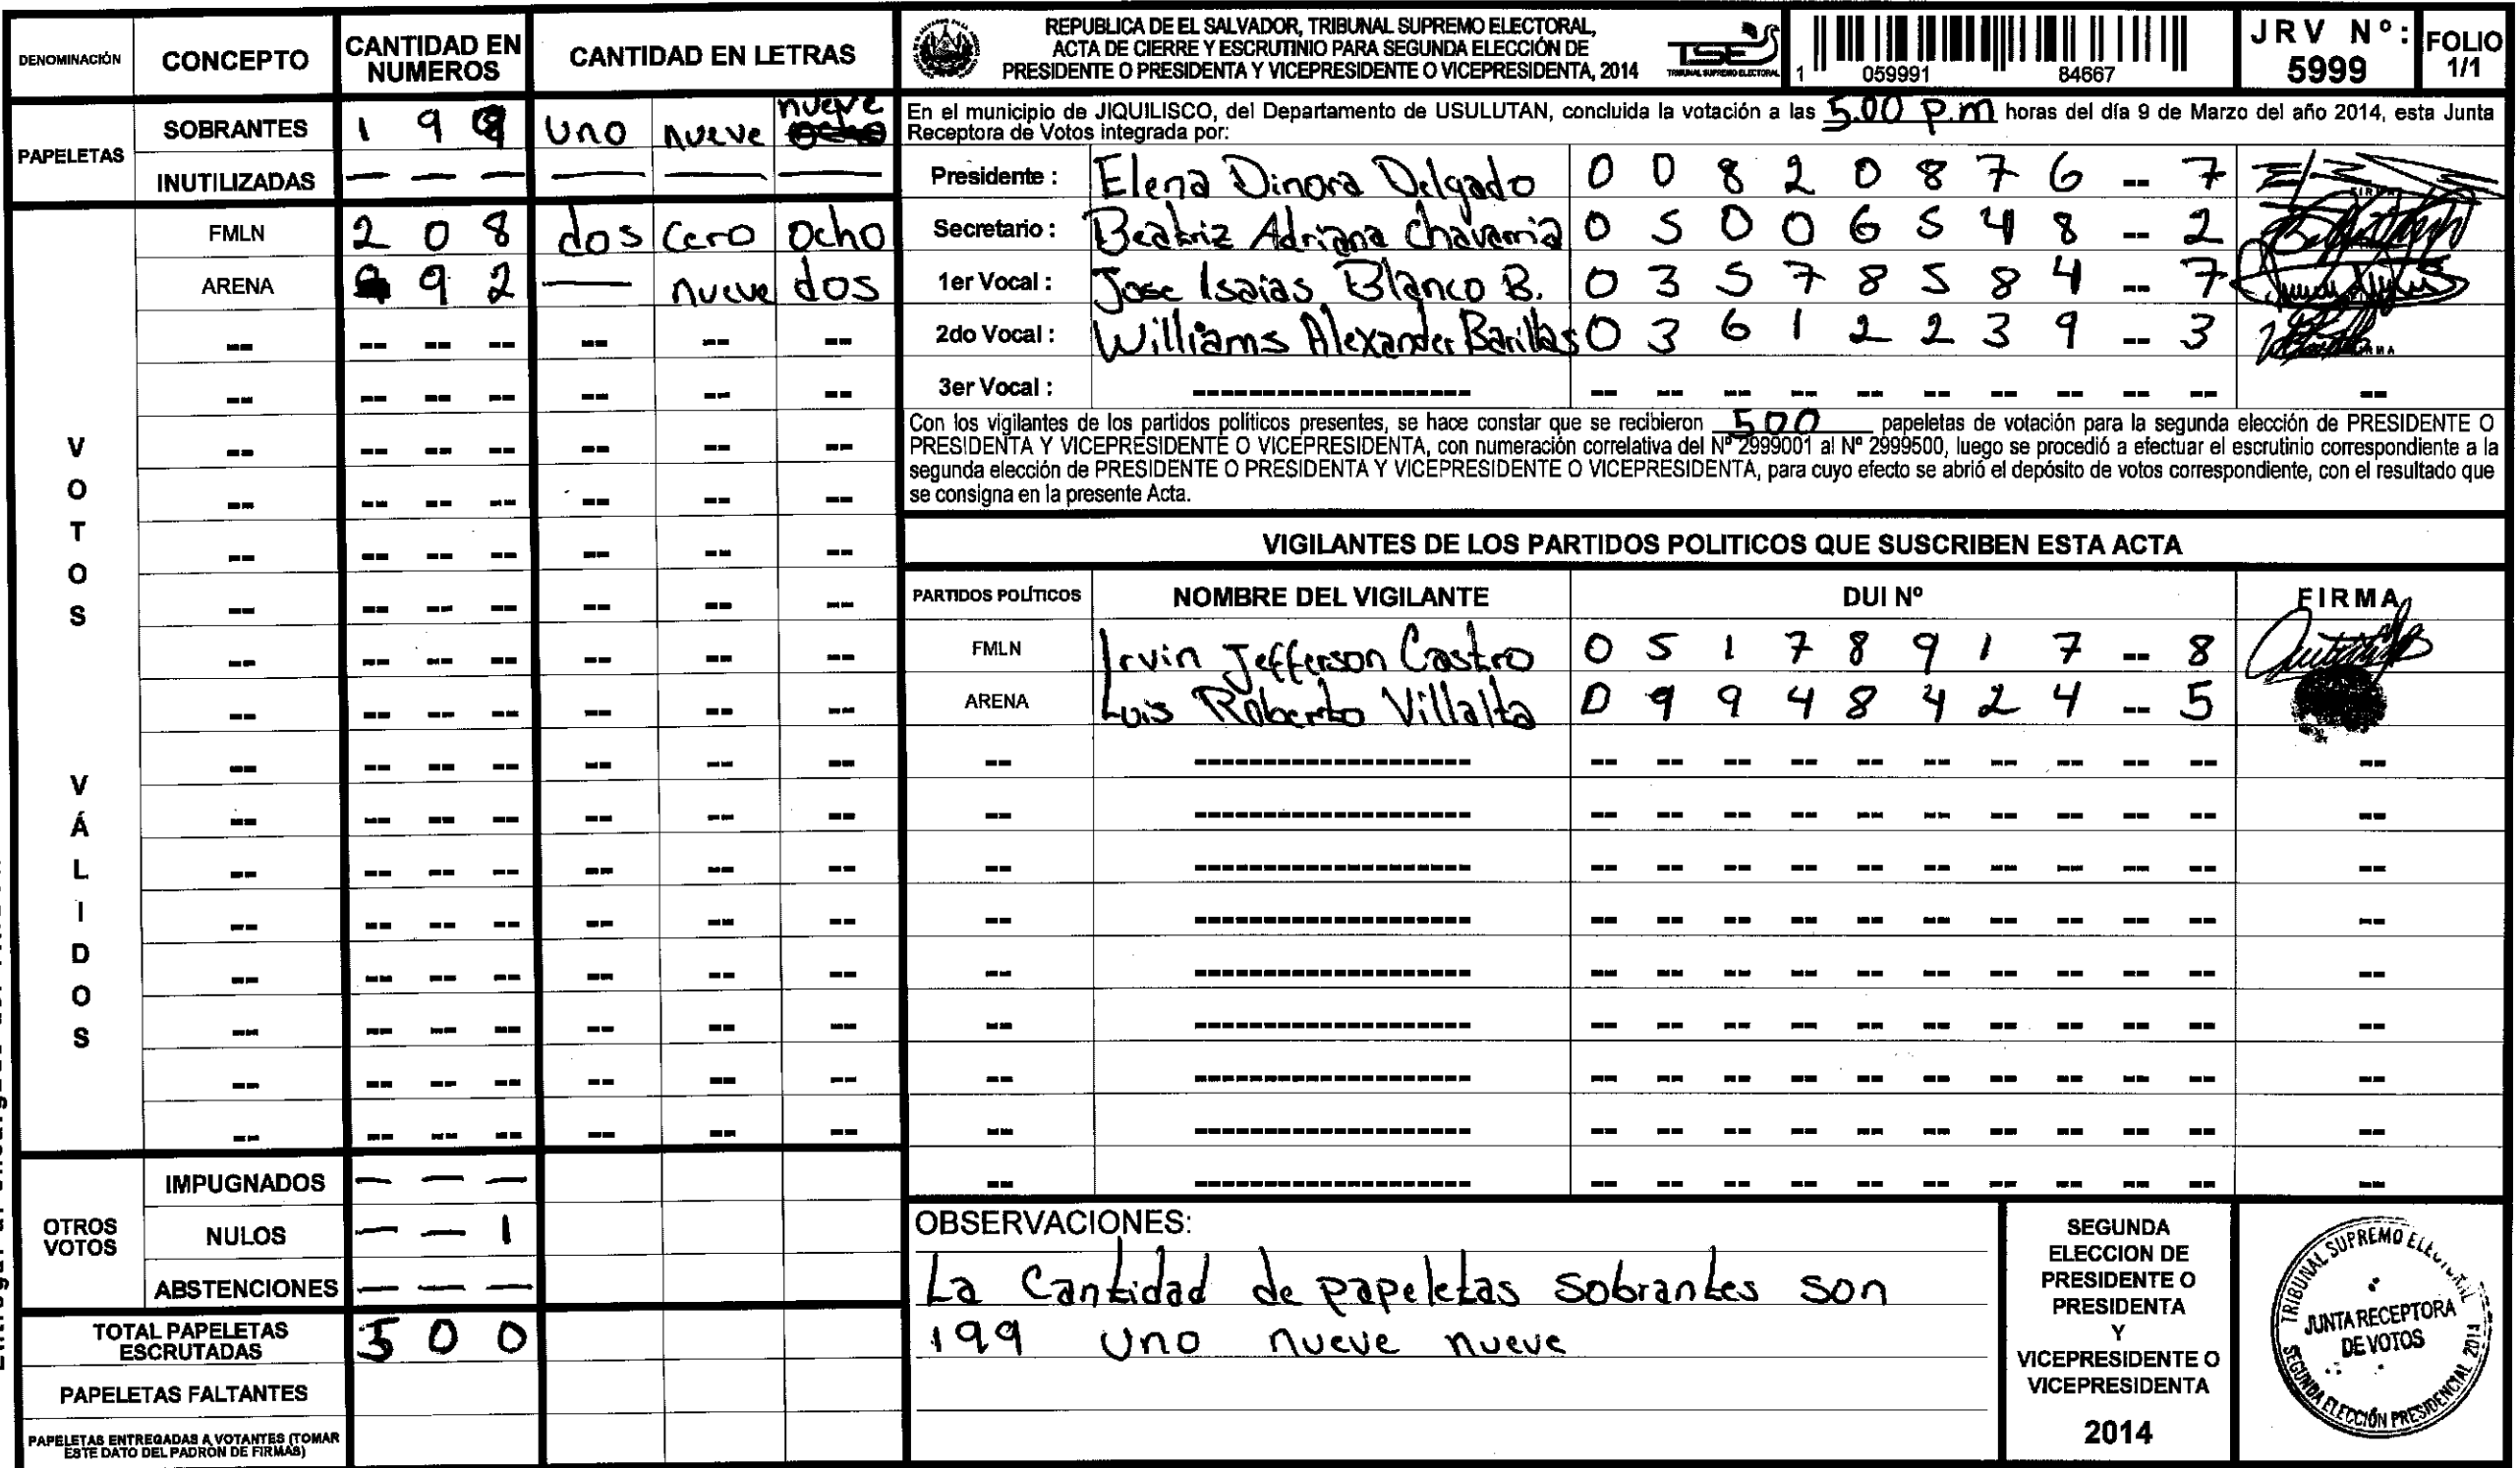 DENOMINACIÓN CONCEPTO CANTIDAD EN NUMEROS CANTIDAD EN LETRAS
PAPELETAS
SOBRANTES 1 9 9 uno nueve nueve
INUTILIZADAS — — — — — —
VOTOS VÁLIDOS
FMLN 2 0 8 dos cero ocho
ARENA 9 2 — nueve dos
OTROS VOTOS
IMPUGNADOS — — —
NULOS — — 1
ABSTENCIONES — — —
TOTAL PAPELETAS ESCRUTADAS 5 0 0
PAPELETAS FALTANTES
PAPELETAS ENTREGADAS A VOTANTES (TOMAR ESTE DATO DEL PADRON DE FIRMAS)
REPUBLICA DE EL SALVADOR, TRIBUNAL SUPREMO ELECTORAL,
ACTA DE CIERRE Y ESCRUTINIO PARA SEGUNDA ELECCIÓN DE
PRESIDENTE O PRESIDENTA Y VICEPRESIDENTE O VICEPRESIDENTA, 2014
TSE
TRIBUNAL SUPREMO ELECTORAL
1 059991 84667
JRV Nº: 5999
FOLIO 1/1
En el municipio de JIQUILISCO, del Departamento de USULUTAN, concluida la votación a las 5.00 p.m horas del día 9 de Marzo del año 2014, esta Junta
Receptora de Votos integrada por:
Presidente : Elena Dinora Delgado 0 0 8 2 0 8 7 6 -- 7
Secretario : Beatriz Adriana Chavarria 0 5 0 0 6 5 4 8 -- 2
1er Vocal : Jose Isaias Blanco B. 0 3 5 7 8 5 8 4 -- 7
2do Vocal : Williams Alexander Barillas 0 3 6 1 2 2 3 9 -- 3
3er Vocal : -------------------
Con los vigilantes de los partidos políticos presentes, se hace constar que se recibieron 500 papeletas de votación para la segunda elección de PRESIDENTE O
PRESIDENTA Y VICEPRESIDENTE O VICEPRESIDENTA, con numeración correlativa del Nº 2999001 al Nº 2999500, luego se procedió a efectuar el escrutinio correspondiente a la
segunda elección de PRESIDENTE O PRESIDENTA Y VICEPRESIDENTE O VICEPRESIDENTA, para cuyo efecto se abrió el depósito de votos correspondiente, con el resultado que
se consigna en la presente Acta.
VIGILANTES DE LOS PARTIDOS POLITICOS QUE SUSCRIBEN ESTA ACTA
PARTIDOS POLÍTICOS NOMBRE DEL VIGILANTE DUI Nº FIRMA
FMLN Irvin Jefferson Castro 0 5 1 7 8 9 1 7 -- 8
ARENA Luis Roberto Villalta 0 9 9 4 8 4 2 4 -- 5
OBSERVACIONES:
La Cantidad de papeletas sobrantes son
199 uno nueve nueve
SEGUNDA
ELECCION DE
PRESIDENTE O
PRESIDENTA
Y
VICEPRESIDENTE O
VICEPRESIDENTA
2014
TRIBUNAL SUPREMO ELECTORAL
JUNTA RECEPTORA
DE VOTOS
SEGUNDA ELECCIÓN PRESIDENCIAL 2014